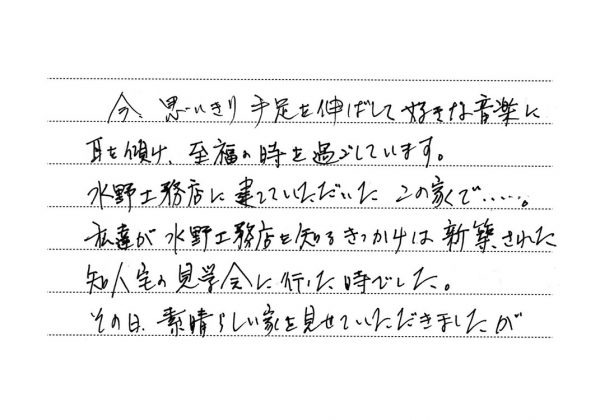 今、思いきり手足を伸ばして好きな音楽に
耳を傾け、至福の時を過ごしています。
水野工務店に建てていただいたこの家で……。
私達が水野工務店を知るきっかけは新築された
知人宅の見学会に行った時でした。
その日、素晴らしい家を見せていただきましたが